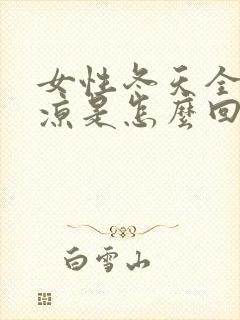 女性冬天全
凉是怎麼回
白雪山